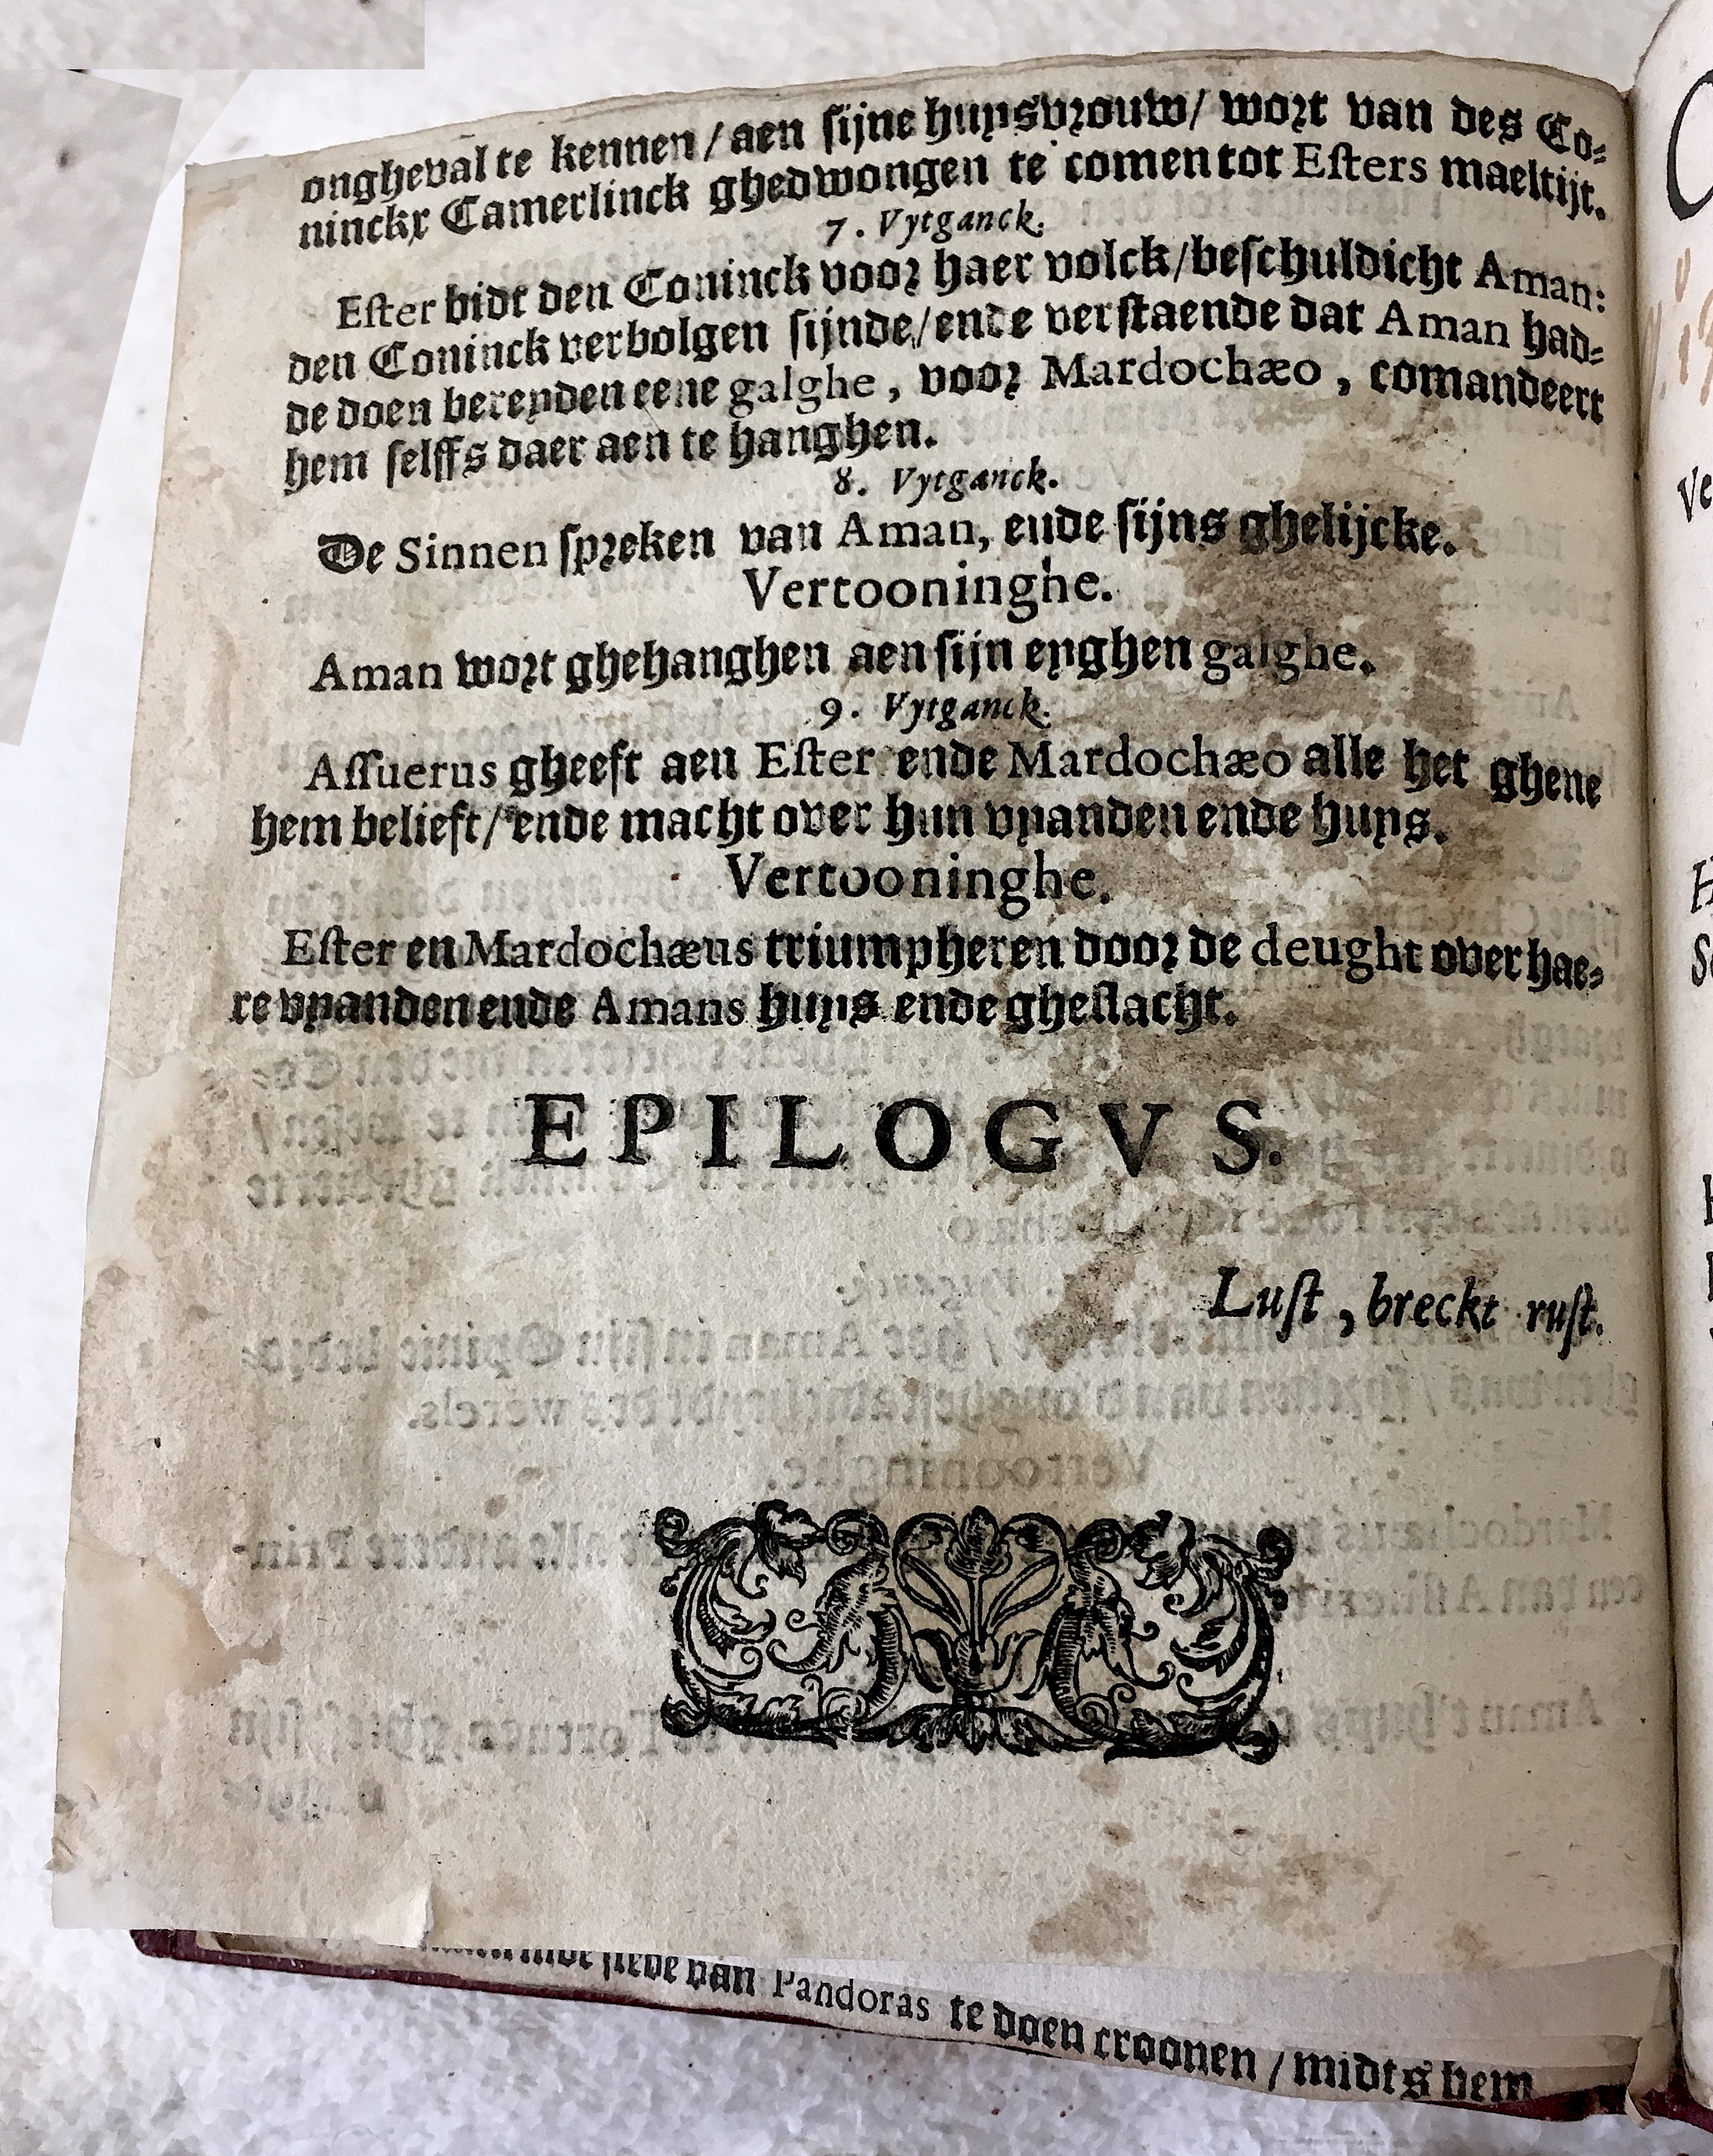 ongheval te kennen / aen sijne huysvrouw / wort van des Co-
ninckx Camerlinck ghedwongen te comen tot Esters maeltijt.
7. Vytganck.
Ester bidt den Coninck voor haer volck / beschuldicht Aman:
den Coninck verbolgen sijnde / ende verstaende dat Aman had-
de doen bereyden eene galghe, voor Mardochæo, comandeert
hem selffs daer aen te hanghen.
8. Vytganck.
De Sinnen spreken van Aman, ende sijns ghelijcke.
Vertooninghe.
Aman wort ghehanghen aen sijn eyghen galghe.
9. Vytganck.
Assuerus gheeft aen Ester ende Mardochæo alle het ghene
hem belieft / ende macht over hun vyanden ende huys.
Vertooninghe.
Ester en Mardochæus triumpheren door de deught over hae-
re vyanden ende Amans huys ende gheslacht.
EPILOGVS.
Lust, breckt rust.
van Pandoras te doen croonen / midts hem